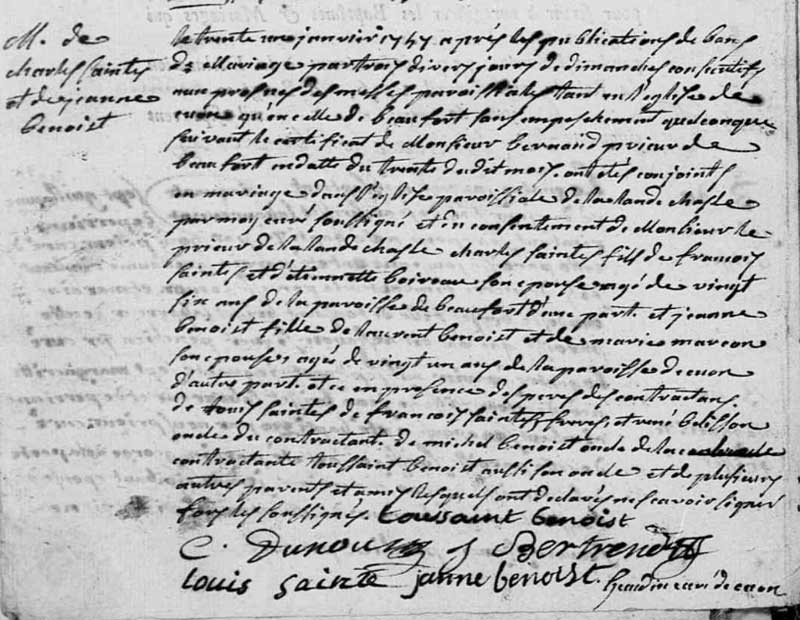 M. de
charles saintes
et de jeanne
benoist
le trente janvier 1747 apres les publications de bans
de Mariage par trois divers jours de dimanches consecutifs
aux prosnes des messes paroissiales tant en l'eglise de
cuon qu'en celle de beaufort sans empeschement quelconque
suivant le certificat de Monsieur bernard prieur de
beaufort en datte du trente dudit mois. ont étés conjoints
en mariage dans l'eglise paroissiale de la lande chasle
par moy curé soussigné et du consentement de Monsieur le
prieur de la lande chasle charles saintes fils de francois
saintes et d'etiennette boireau son epouse agé de vingt
six ans de la paroisse de beaufort d'une part. et jeanne
benoist fille de laurent benoist et de marie marcon
son epouse agée de vingt un ans de la paroisse de cuon
d'autre part. et ce en presence des peres des contractans.
de louis saintes de francois saintes freres, et rené belisson
oncle du contractant. de michel benoist oncle de la
contractante toussaint benoist aussi son oncle et de plusieurs
autres parents et amis lesquels ont declarés ne scavoir signer
fors les soussignés. tousaint benoist
C. Dunou J Bertrend
louis sainte janne benoist. curé de cuon